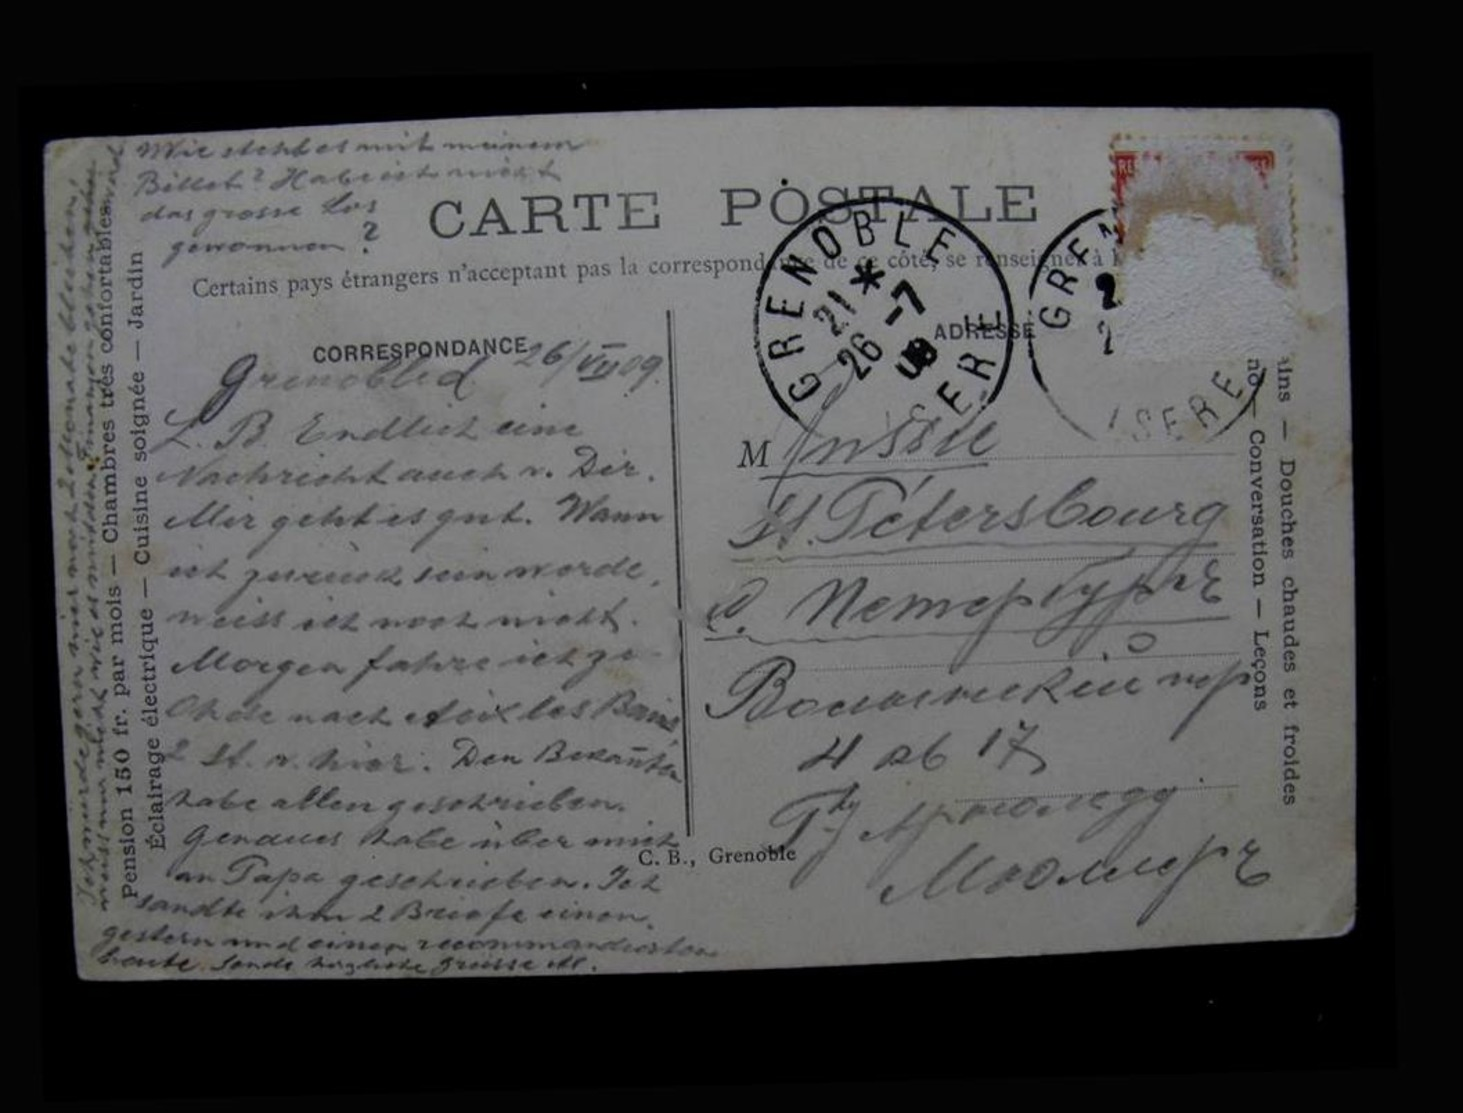 Wie steht es mit meinem
Billet? Habe ich nicht
das grosse Los
gewonnen?
CARTE POSTALE
Certains pays étrangers n'acceptant pas la correspondance de ce côté, se renseigner à
CORRESPONDANCE
ADRESSE
Grenoble d. 26/VII 09.
L. B. Endlich eine
Nachricht auch v. Dir.
Mir geht es gut. Wann
ich zurück sein werde,
weiss ich noch nicht.
Morgen fahre ich ge-
rade nach Aix les Bains
2 St. v. hier. Den Bekannten
habe allen geschrieben.
Genaues habe über mich
an Papa geschrieben. Ich
sandte ihm 2 Briefe einen
gestern und einen recommandierten
heute. Sende herzliche Grüsse
Ich würde gern hier noch 2 Monate bleiben,
weiss nur nicht wie es mit den Finanzen gehen wird
Pension 150 fr. par mois — Chambres très confortables
Éclairage électrique — Cuisine soignée — Jardin
GRENOBLE
ISERE
21 * 26 -7 09
GRE
ISERE
M Russie
St. Pétersbourg
С. Петербургъ
4 кв 17
Мюллеръ
C. B., Grenoble
ins — Douches chaudes et froides
no — Conversation — Leçons